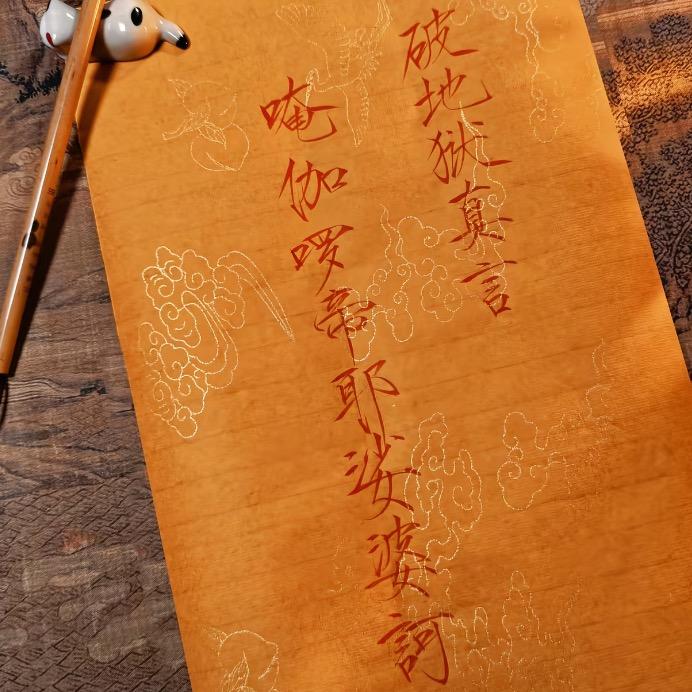 破地狱真言
唵伽啰帝耶娑婆訶